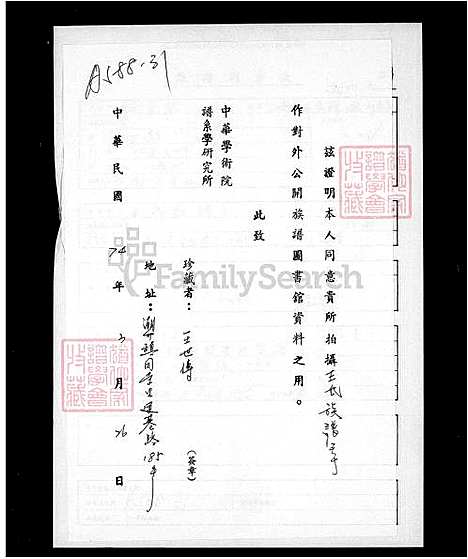 A588-31
茲證明本人同意貴所拍攝王氏族譜
作對外公開族譜圖書館資料之用。
此致
中華學術院
譜系學研究所
珍藏者：王世傳
地址：潮
(簽章)
中華民國74年5月26日
FamilySearch
譜學會
收藏
譜學會
收藏